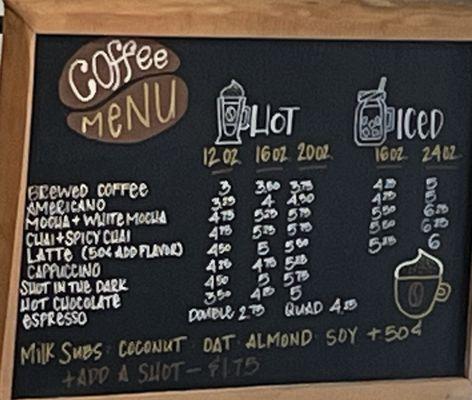 COFFEE
MENU
HOT ICED
12 OZ 16 OZ 20 OZ 16 OZ 24 OZ
BREWED COFFEE 3 3.50 3.75 5
AMERICANO 3.25 4 4.50 5
MOCHA + WHITE MOCHA 4.75 5.25 5.75 5.50 6.25
CHAI + SPICY CHAI 4.75 5.25 5.75 5.50 6.25
LATTE (50¢ ADD FLAVOR) 4.50 5 5.50 6
CAPPUCCINO 4.75
SHOT IN THE DARK 4.50 5 5.75
HOT CHOCOLATE 3.50 5
ESPRESSO DOUBLE 2.75 QUAD
MILK SUBS: COCONUT OAT ALMOND SOY +50¢
+ADD A SHOT - $1.75